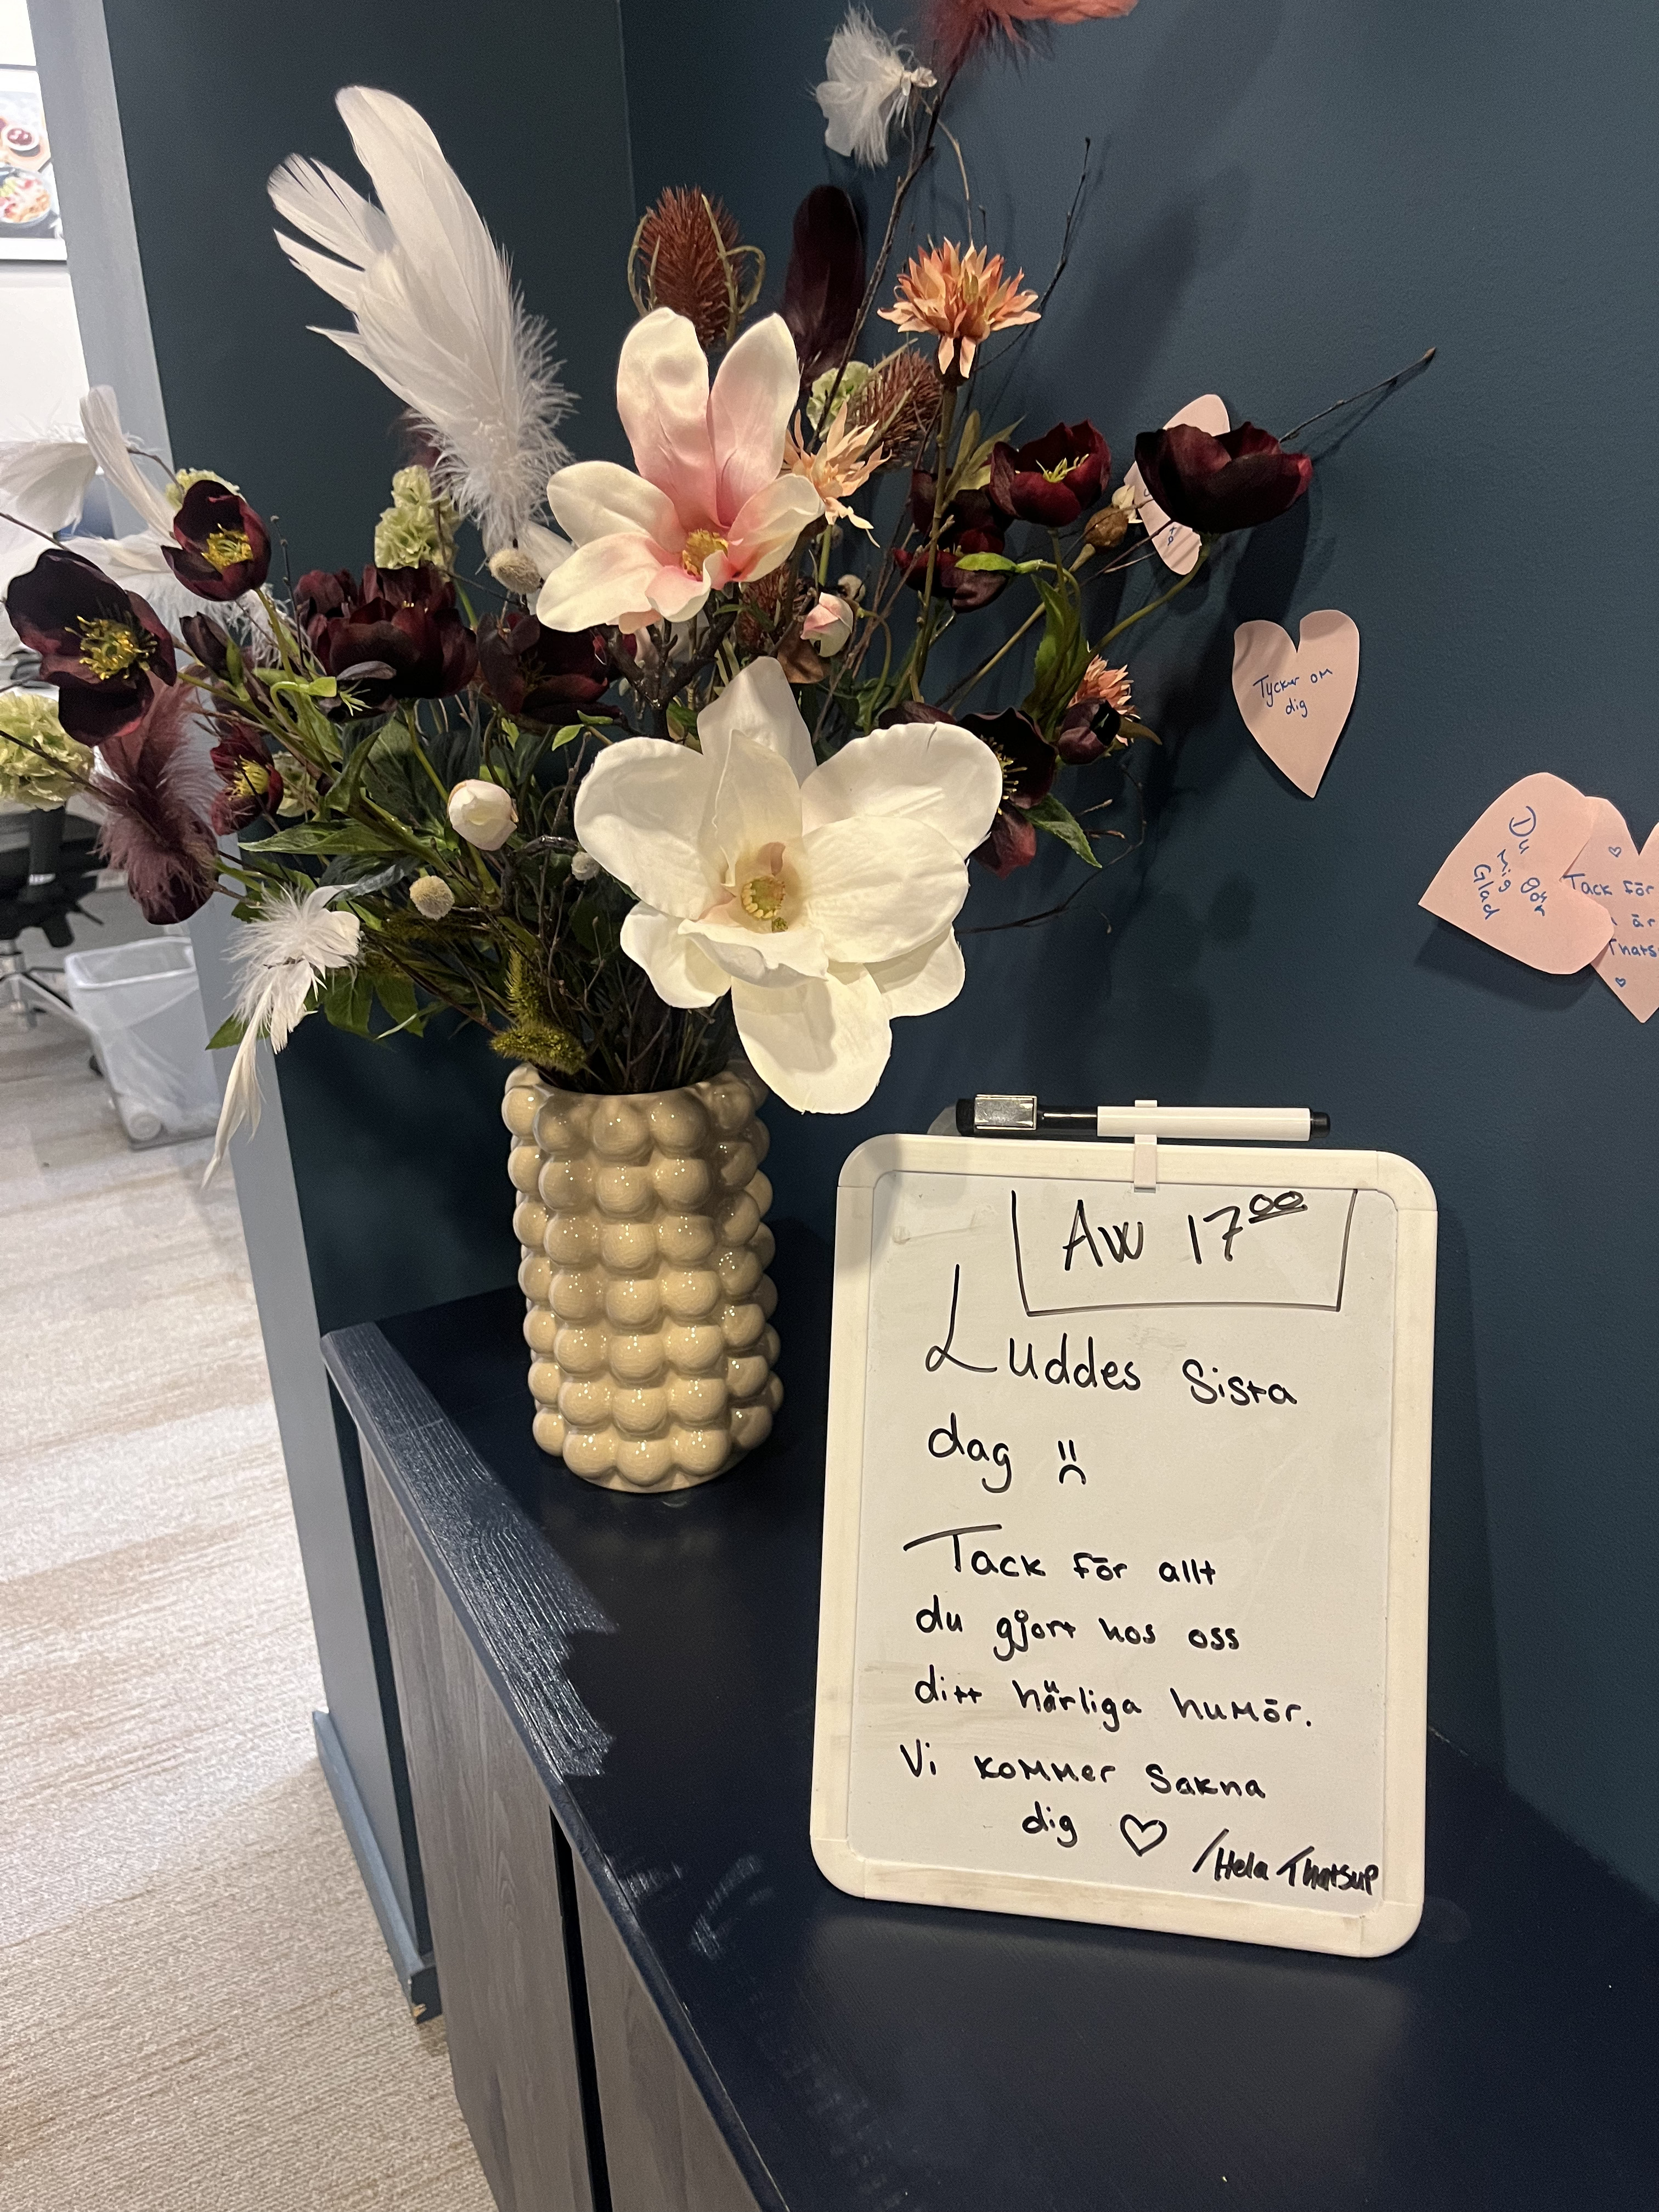 Tycker om
dig
Du
gör
mig
Glad
Tack för
är
AW 17⁰⁰
Luddes sista
dag
Tack för allt
du gjort hos oss
ditt härliga humör.
Vi kommer sakna
dig ♡
/Hela Thatsup